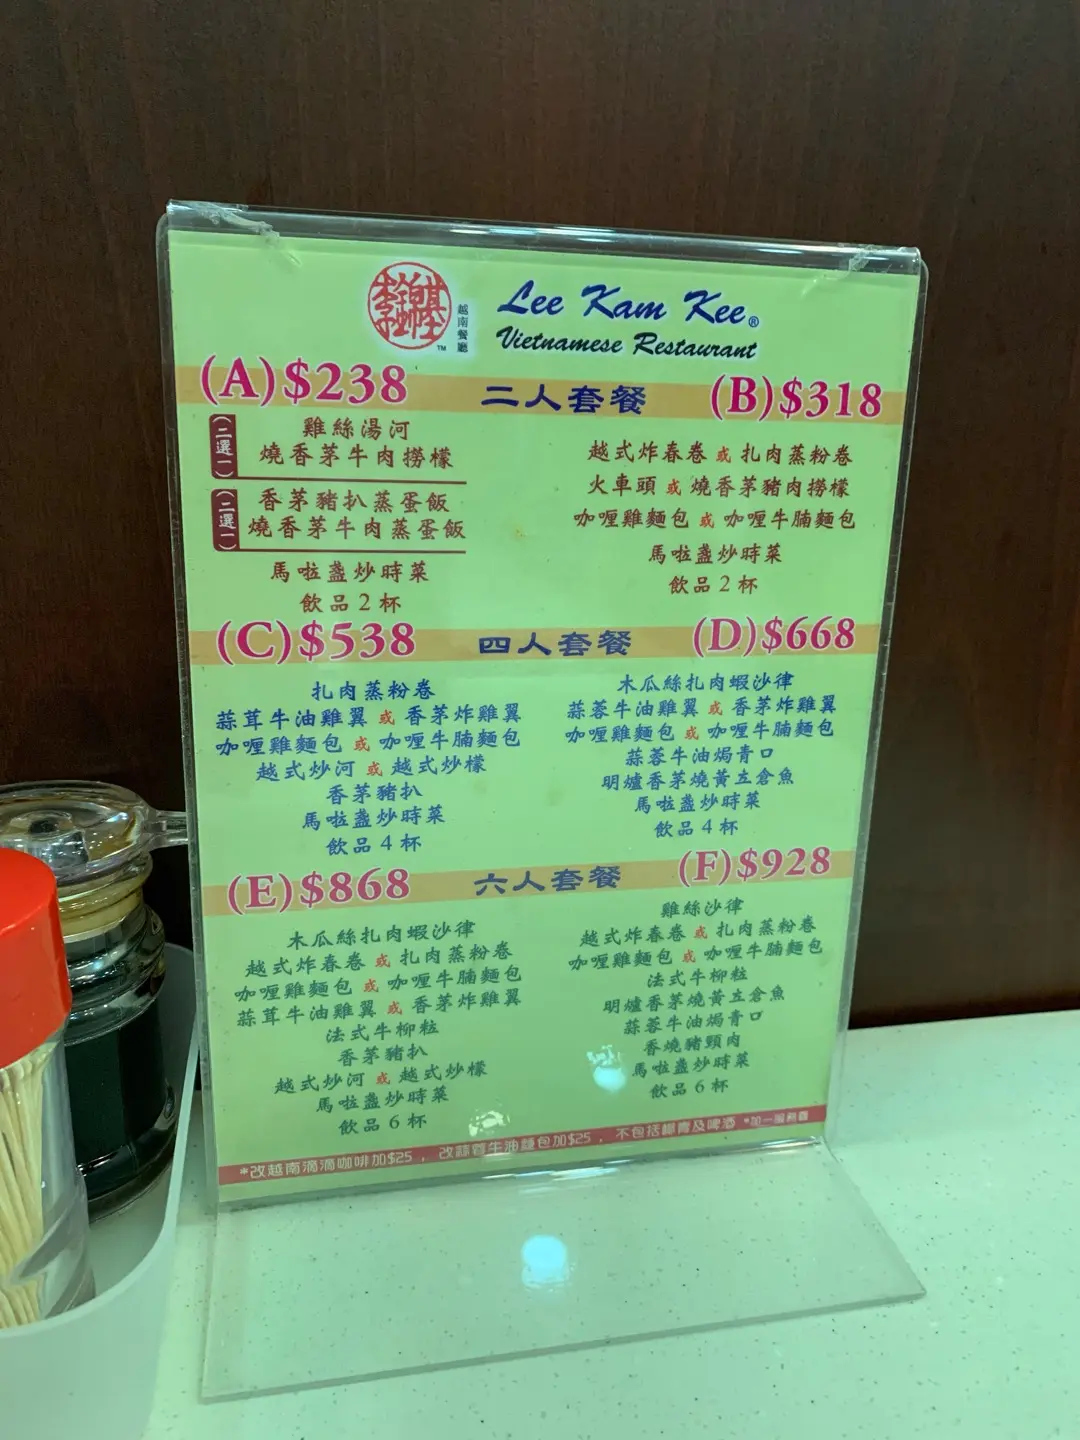 李錦基
越南餐廳
TM
Lee Kam Kee®
Vietnamese Restaurant
(A)$238
二人套餐
(B)$318
(二選一)
雞絲湯河
燒香茅牛肉撈檬
(二選一)
香茅豬扒蒸蛋飯
燒香茅牛肉蒸蛋飯
馬啦盞炒時菜
飲品2杯
越式炸春卷 或 扎肉蒸粉卷
火車頭 或 燒香茅豬肉撈檬
咖喱雞麵包 或 咖喱牛腩麵包
馬啦盞炒時菜
飲品2杯
(C)$538
四人套餐
(D)$668
扎肉蒸粉卷
蒜茸牛油雞翼 或 香茅炸雞翼
咖喱雞麵包 或 咖喱牛腩麵包
越式炒河 或 越式炒檬
香茅豬扒
馬啦盞炒時菜
飲品4杯
木瓜絲扎肉蝦沙律
蒜蓉牛油雞翼 或 香茅炸雞翼
咖喱雞麵包 或 咖喱牛腩麵包
蒜蓉牛油焗青口
明爐香茅燒黃立倉魚
馬啦盞炒時菜
飲品4杯
(E)$868
六人套餐
(F)$928
木瓜絲扎肉蝦沙律
越式炸春卷 或 扎肉蒸粉卷
咖喱雞麵包 或 咖喱牛腩麵包
蒜茸牛油雞翼 或 香茅炸雞翼
法式牛柳粒
香茅豬扒
越式炒河 或 越式炒檬
馬啦盞炒時菜
飲品6杯
雞絲沙律
越式炸春卷 或 扎肉蒸粉卷
咖喱雞麵包 或 咖喱牛腩麵包
法式牛柳粒
明爐香茅燒黃立倉魚
蒜蓉牛油焗青口
香燒豬頸肉
馬啦盞炒時菜
飲品6杯
*改越南滴滴咖啡加$25，改蒜蓉牛油麵包加$25，不包括椰青及啤酒 *加一服務費